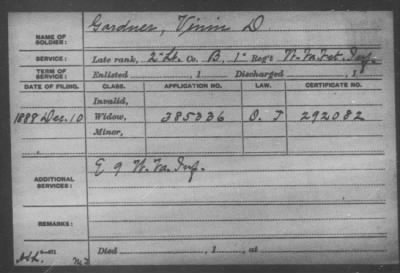 Gardner, Vinin D
NAME OF SOLDIER:
SERVICE: Late rank, 2" Lt. Co. B, 1" Reg't W. Va. Vet. Inf.
TERM OF SERVICE: Enlisted , 1 Discharged , 1
DATE OF FILING. CLASS. APPLICATION NO. LAW. CERTIFICATE NO.
Invalid,
1888 Dec. 10 Widow, 385336 O. L 292082
Minor,
E 9 W. Va. Inf.
ADDITIONAL SERVICES:
REMARKS:
Died , 1 , at